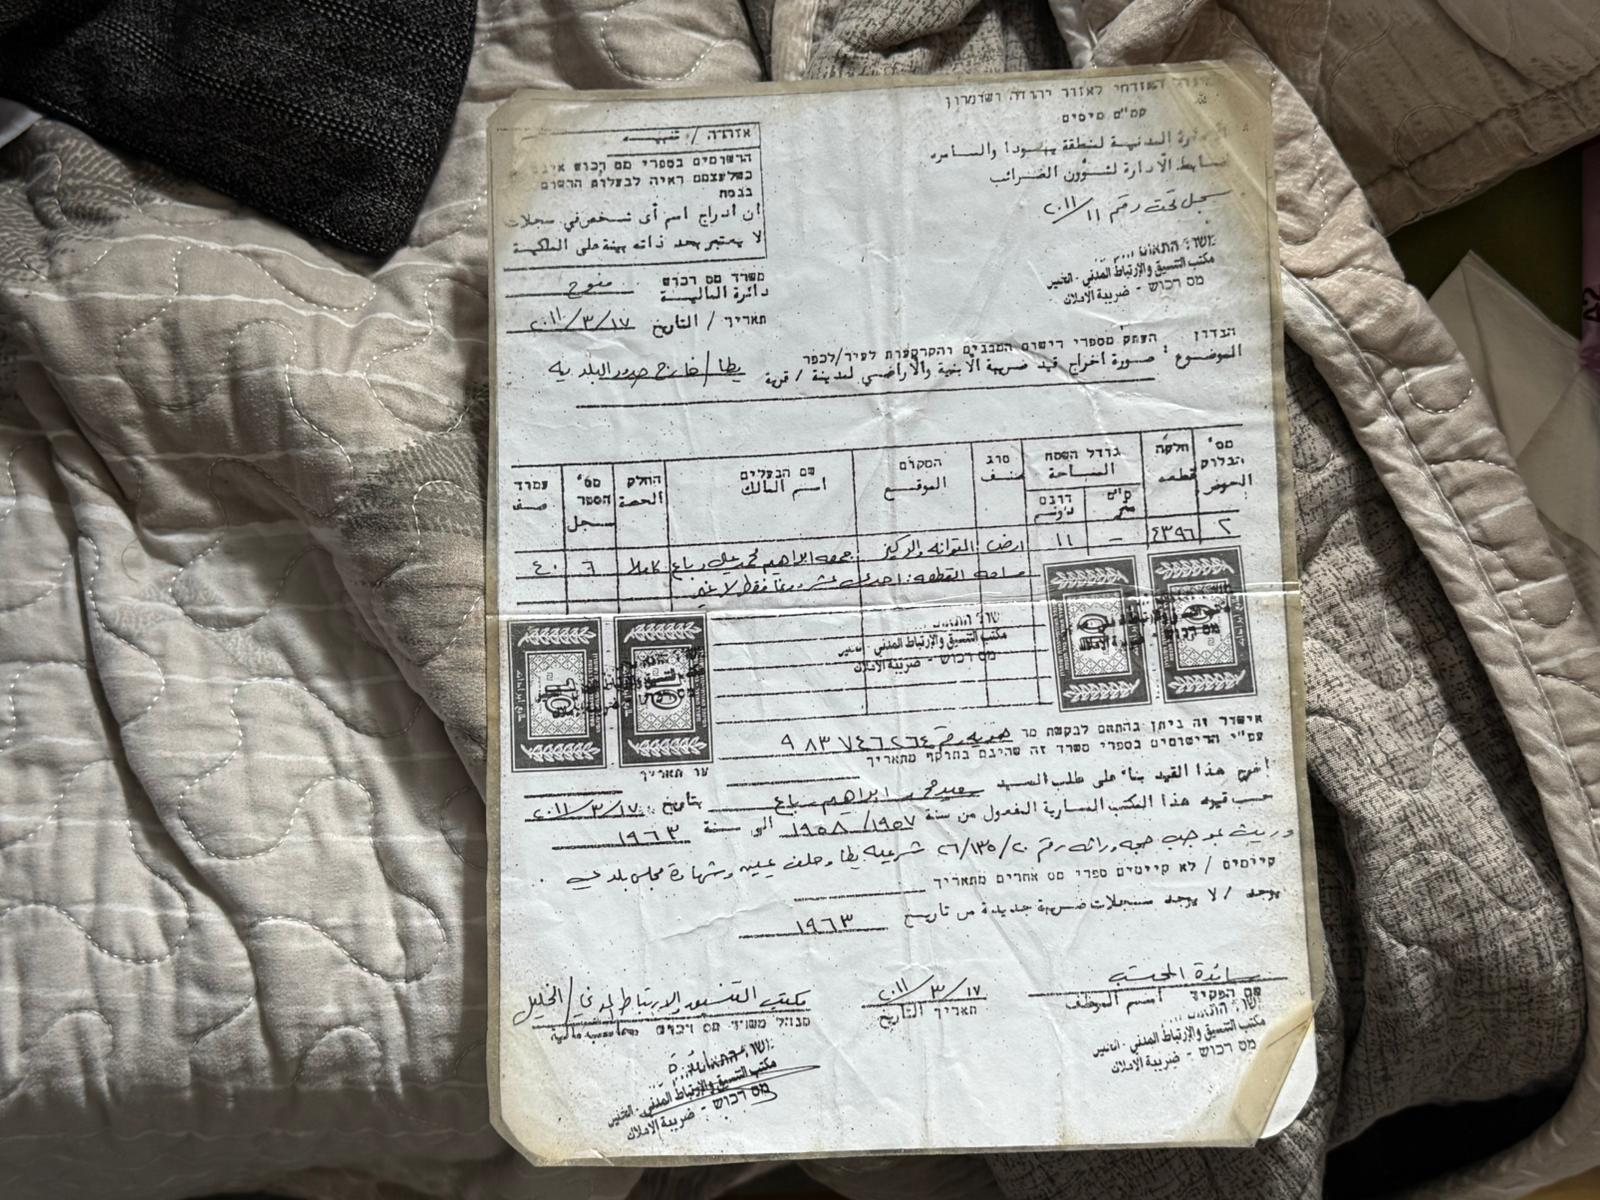 המינהל האזרחי לאזור יהודה ושומרון
קמ"ט מיסים
الادارة المدنية لمنطقة يهودا والسامره
ضابط الادارة لشؤون الضرائب
سجل تحت رقم ١١/٢٠١١
مكتب التنسيق والإرتباط المدني - الخليل
מס רכוש - ضريبة الاملاك
אזהרה / تنبيه
הרשומים בספרי מס רכוש אינם
כשלעצמם ראיה לבעלות הרשום
בנסח
ان ادراج اسم أي شخص في سجلات
لا يعتبر بحد ذاته بينة على الملكية
משרד מס רכוש
دائرة المالية
תאריך / التاريخ ٢٠١١/٣/١٧
הנדון : העתק מספרי רישום המבנים והקרקעות לעיר/לכפר
الموضوع : صورة اخراج قيد ضريبة الأبنية والأراضي لمدينة / قرية يطا / خارج حدود البلدية
מס' הבלוק الحوض
חלקה قطعه
גודל השטח المساحة
מ"ם متر
דונם دونم
סוג صنف
המקום الموقع
שם הבעלים اسم المالك
החלק الحصة
מס' הספר سجل
עמוד صف
٢ ٤٣٩٦ - ١١ ارض التوانه والركيز جمعه ابراهيم محمد علي رباع كاملا ٦ ٤٠
مساحه القطعه : احدى عشر دونما فقط لا غير
مكتب التنسيق والإرتباط المدني - الخليل
מס רכוש - ضريبة الاملاك
אישור זה ניתן בהתאם לבקשת מר هويه رقم ٩٨٣٧٤٦٢٦٤
עפ"י הרישומים בספרי משרד זה שהינם בתוקף מתאריך
עד תאריך
اخرج هذا القيد بناء على طلب السيد سعيد محمد ابراهيم رباع بتاريخ ٢٠١١/٣/١٧
حسب قيود هذا المكتب السارية المفعول من سنة ١٩٥٨/١٩٥٧ الى سنة ١٩٦٣
وريث بموجب حجه وراثه رقم ٢٦/١٣٥/٢٠ شرعيه يطا وحلف يمين وشهادة مجلس بلدي .
קיימים / לא קיימים ספרי מס אחרים מתאריך
يوجد / لا يوجد سجلات ضريبة جديدة من تاريخ ١٩٦٣
שם הפקיד اسم الموظف
٢٠١١/٣/١٧
תאריך التاريخ
مكتب التنسيق والارتباط المدني / الخليل
מנהל משרד מס רכוש
مكتب التنسيق والإرتباط المدني - الخليل
מס רכוש - ضريبة الاملاك
مكتب التنسيق والإرتباط المدني - الخليل
מס רכוש - ضريبة الاملاك